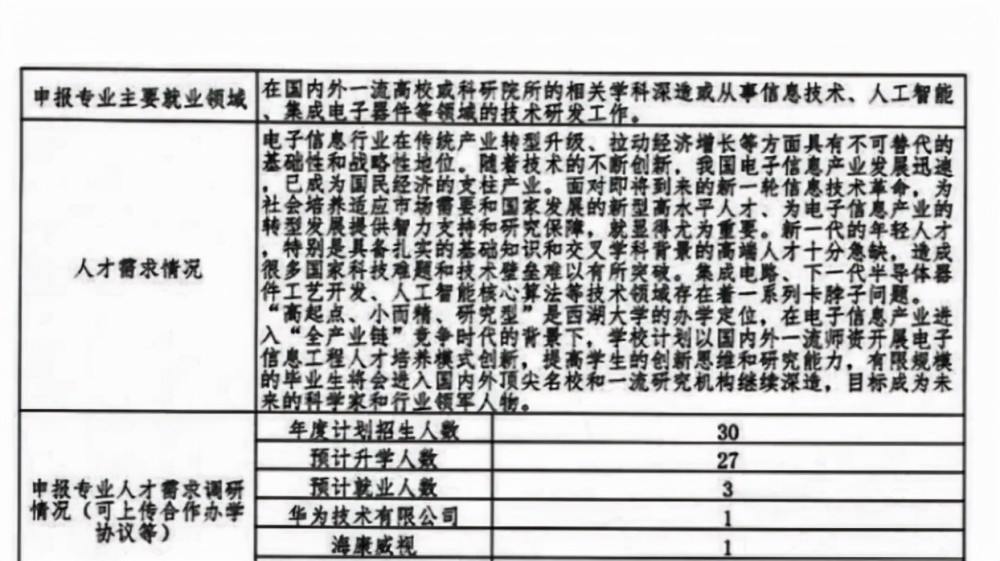 申报专业主要就业领域
在国内外一流高校或科研院所的相关学科深造或从事信息技术、人工智能
、集成电子器件等领域的技术研发工作。
人才需求情况
电子信息行业在传统产业转型升级、拉动经济增长等方面具有不可替代的
基础性和战略性地位。随着技术的不断创新，我国电子信息产业发展迅速
，已成为国民经济的支柱产业。面对即将到来的新一轮信息技术革命，为
社会培养适应市场需要和国家发展的新型高水平人才、为电子信息产业的
转型发展提供智力支持和研究保障，就显得尤为重要。新一代的年轻人才
，特别是具备扎实的基础知识和交叉学科背景的高端人才十分急缺，造成
很多国家科技难题和技术壁垒难以有所突破。集成电路、下一代半导体器
件工艺开发、人工智能核心算法等技术领域存在着一系列卡脖子问题。
“高起点、小而精、研究型”是西湖大学的办学定位，在电子信息产业进
入“全产业链”竞争时代的背景下，学校计划以国内外一流师资开展电子
信息工程人才培养模式创新，提高学生的创新思维和研究能力，有限规模
的毕业生将会进入国内外顶尖名校和一流研究机构继续深造，目标成为未
来的科学家和行业领军人物。
申报专业人才需求调研
情况（可上传合作办学
协议等）
年度计划招生人数 30
预计升学人数 27
预计就业人数 3
华为技术有限公司 1
海康威视 1